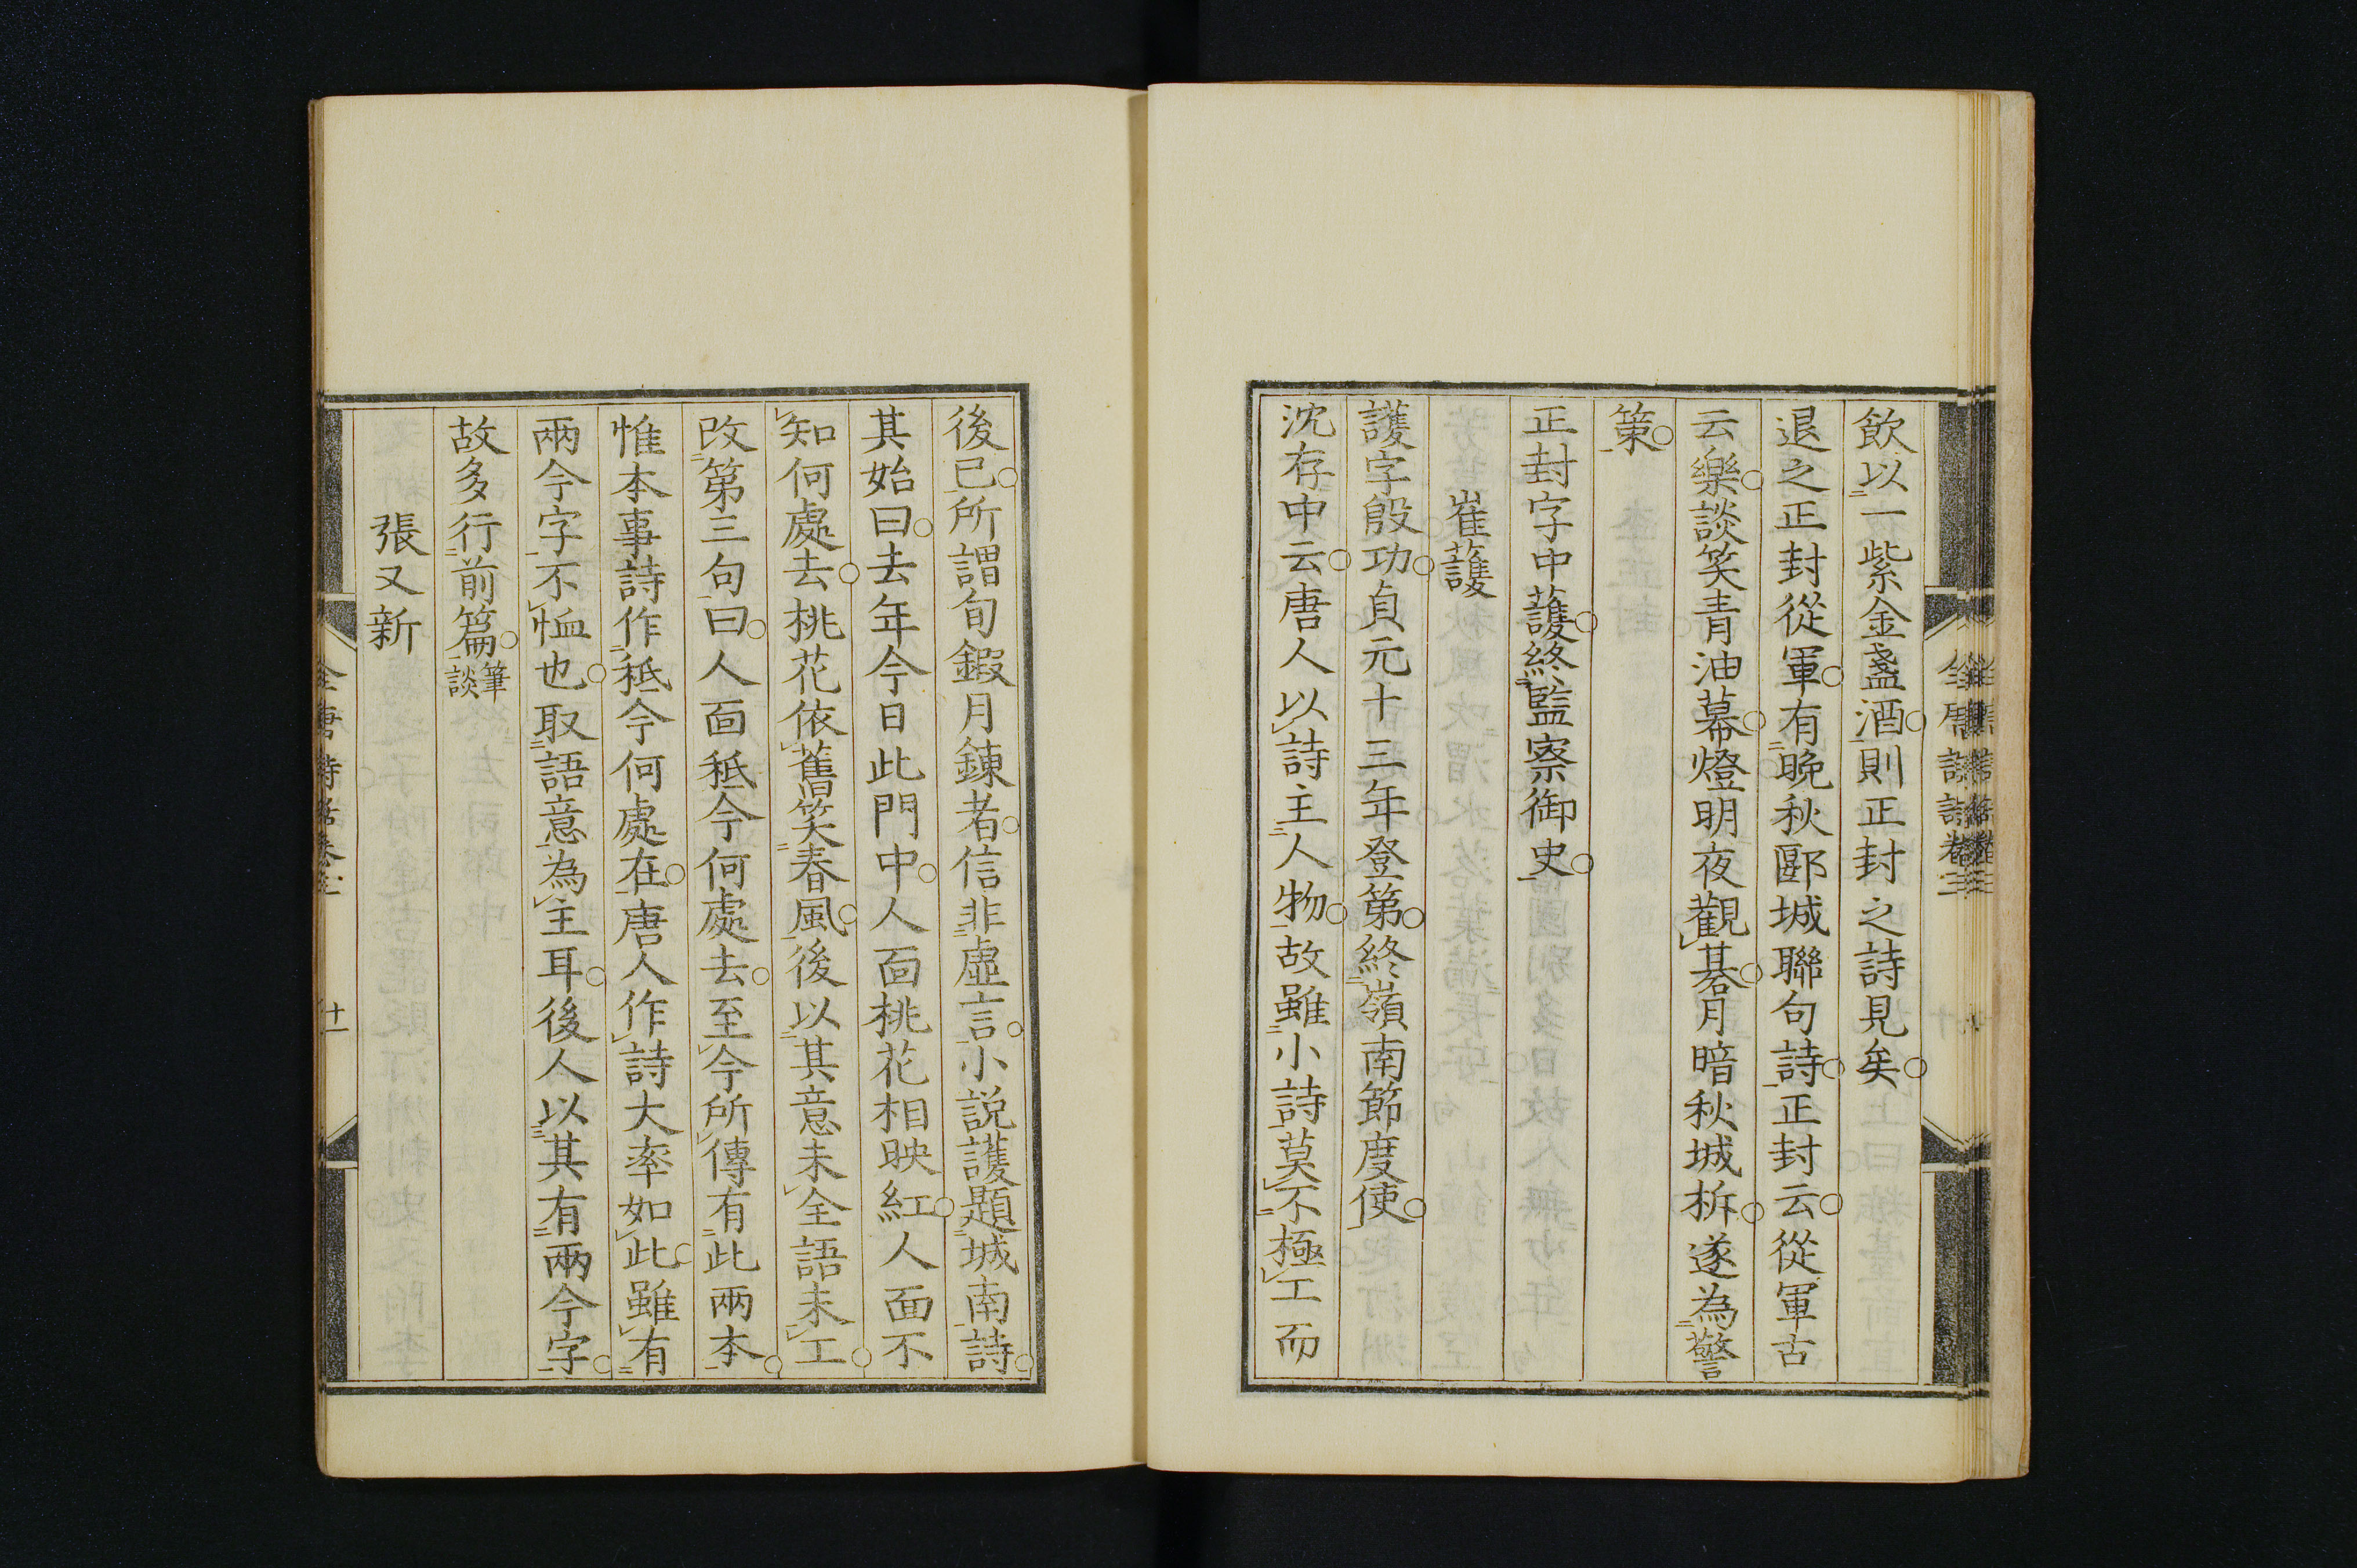 飲以一紫金盞酒則正封之詩見矣
退之正封從軍有晚秋郾城聯句詩正封云從軍古
云樂談笑青油幕燈明夜觀棊月暗秋城柝遂為警
策
正封字中護終監察御史
崔護
護字殷功貞元十三年登第終嶺南節度使
沈存中云唐人以詩主人物故雖小詩莫不極工而
後已所謂旬鍜月鍊者信非虛言小說護題城南詩
其始曰去年今日此門中人面桃花相映紅人面不
知何處去桃花依舊笑春風後以其意未全語未工
改第三句曰人面秪今何處去至今所傳有此兩本
惟本事詩作秪今何處在唐人作詩大率如此雖有
兩今字不恤也取語意為主耳後人以其有兩今字
故多行前篇筆談
張又新
全唐詩話卷三
十一